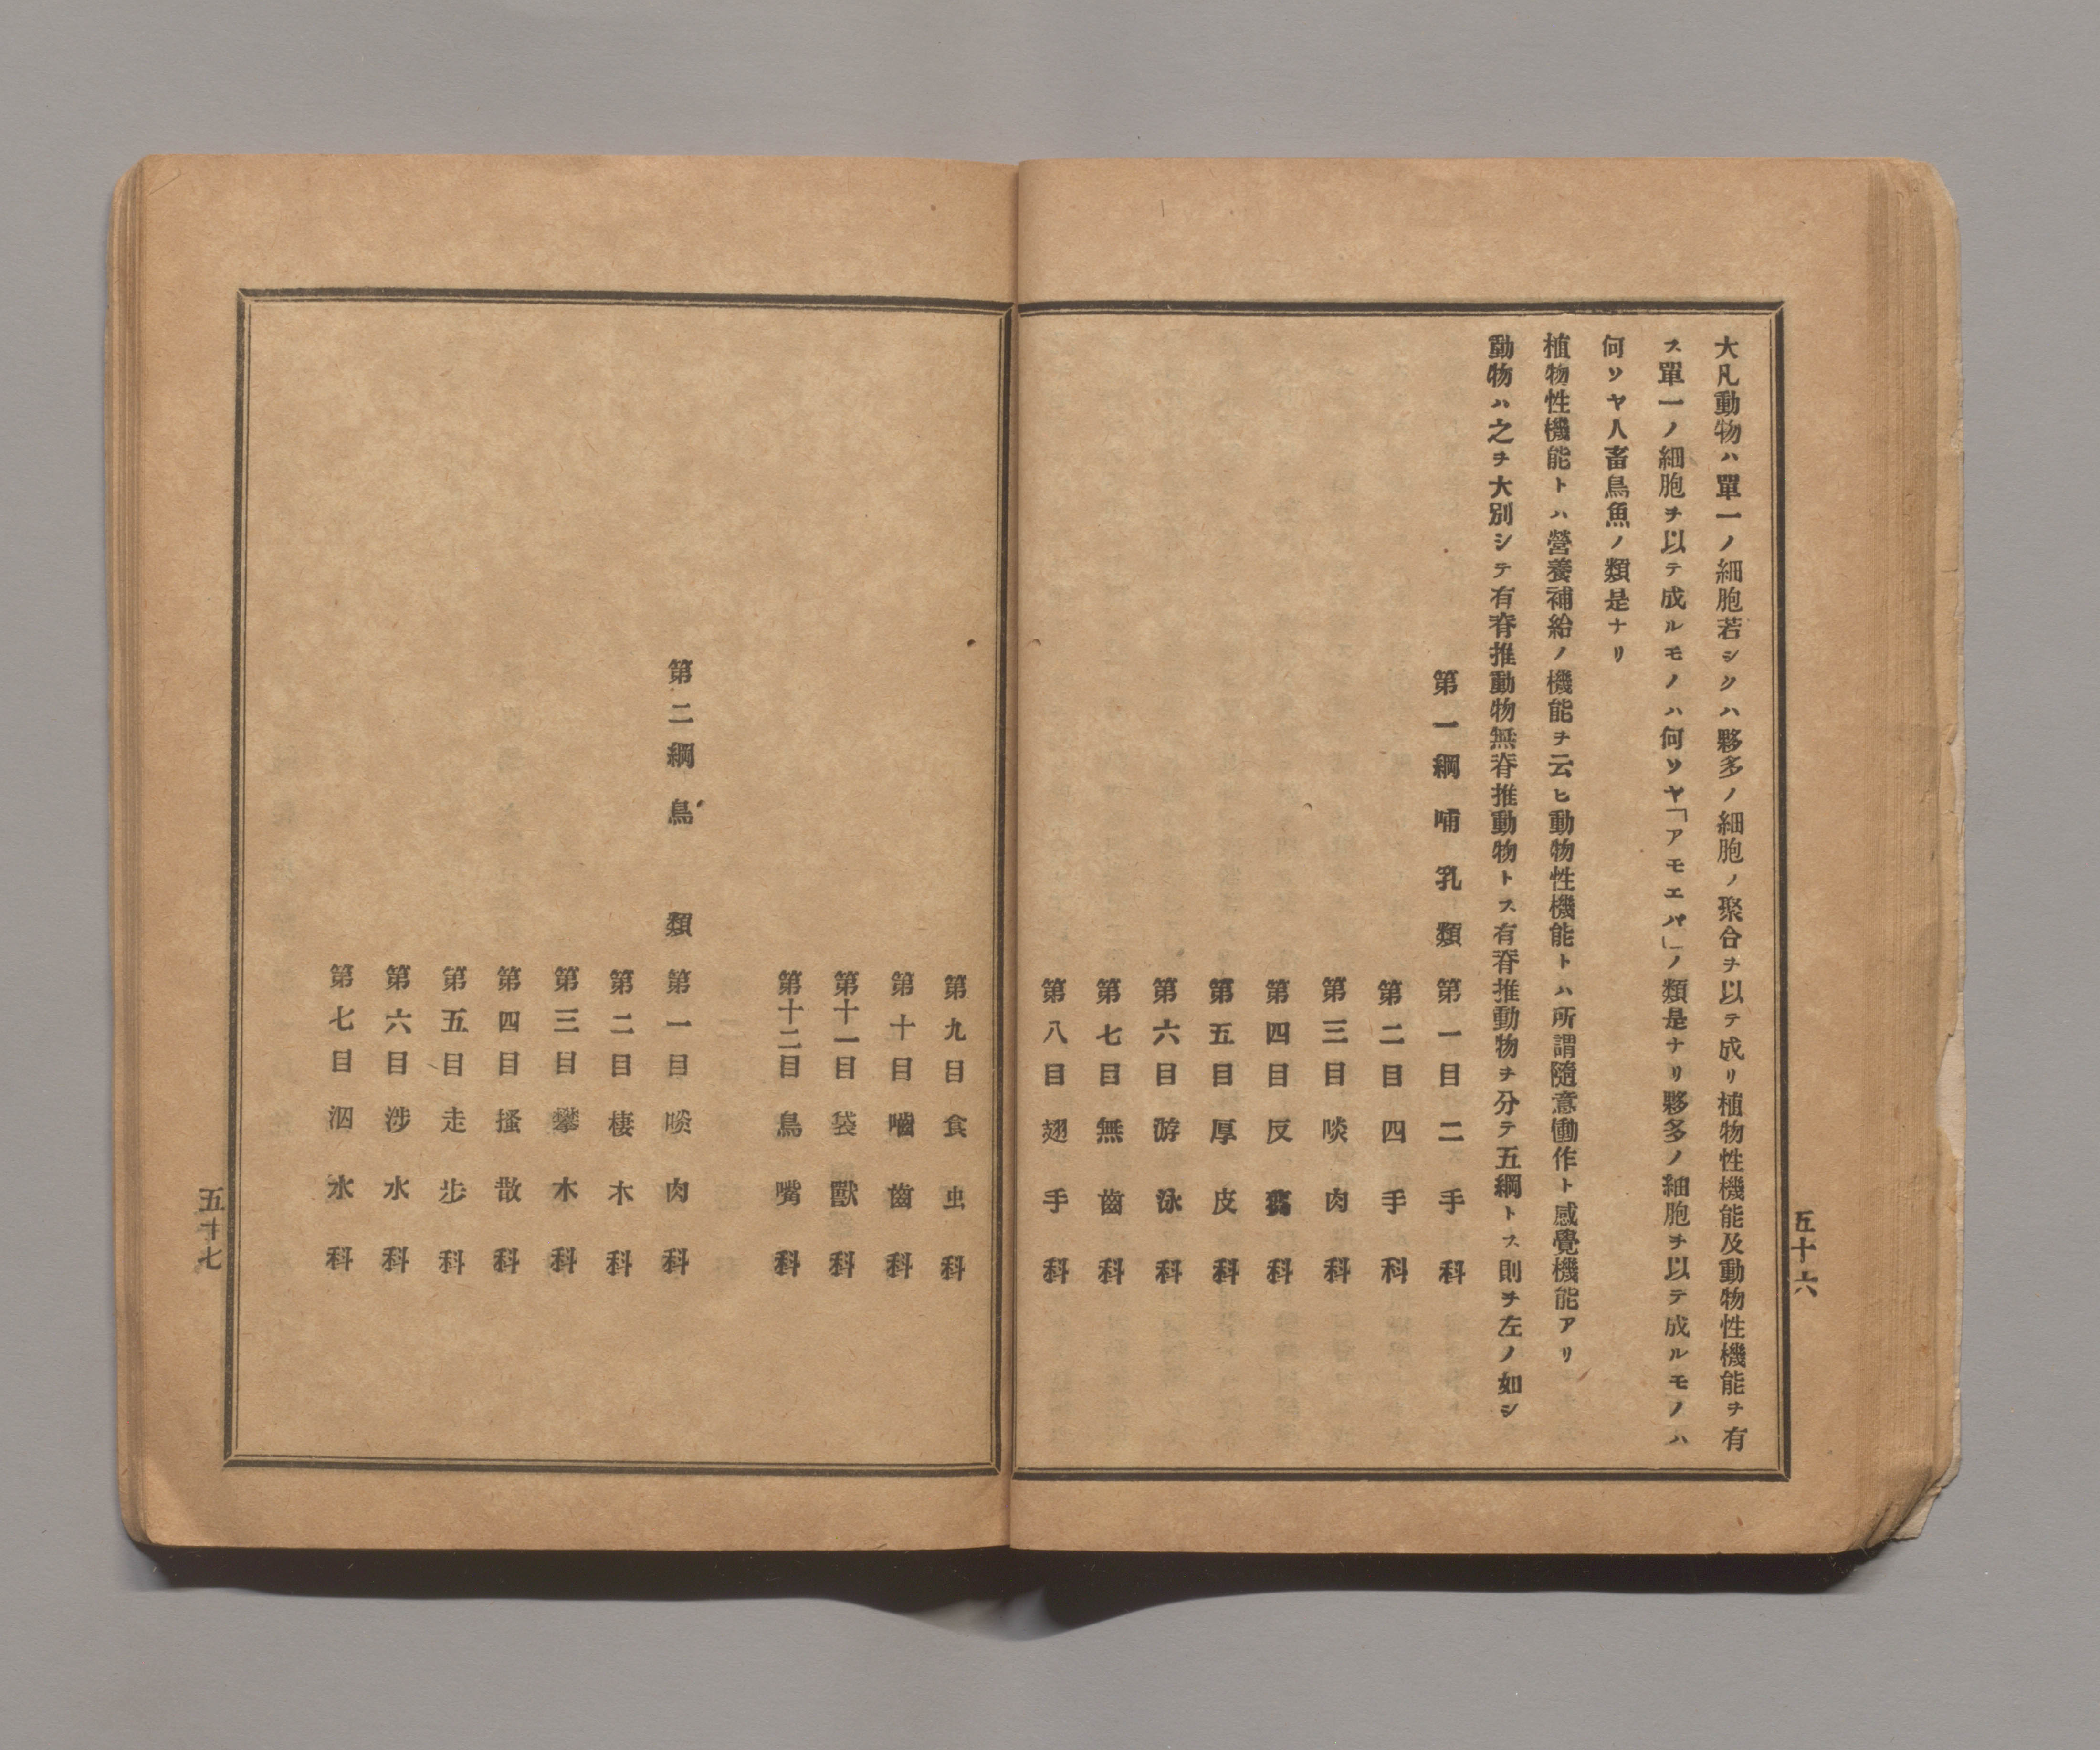 大凡動物ハ單一ノ細胞若シクハ夥多ノ細胞ノ聚合ヲ以テ成リ植物性機能及動物性機能ヲ有
ス單一ノ細胞ヲ以テ成ルモノハ何ソヤ「アモエバ」ノ類是ナリ夥多ノ細胞ヲ以テ成ルモノハ
何ソヤ人畜鳥魚ノ類是ナリ
植物性機能トハ營養補給ノ機能ヲ云ヒ動物性機能トハ所謂隨意働作ト感覺機能アリ
動物ハ之ヲ大別シテ有脊推動物無脊推動物トス有脊推動物ヲ分テ五綱トス則ヲ左ノ如シ
第一綱哺乳類 第一目二手科
第二目四手科
第三目啖肉科
第四目反芻科
第五目厚皮科
第六目游泳科
第七目無齒科
第八目翅手科
五十六
第九目食虫科
第十目嚙齒科
第十一目袋獸科
第十二目鳥嘴科
第二綱鳥類 第一目啖肉科
第二目棲木科
第三目攀木科
第四目搔散科
第五目走步科
第六目涉水科
第七目泅水科
五十七